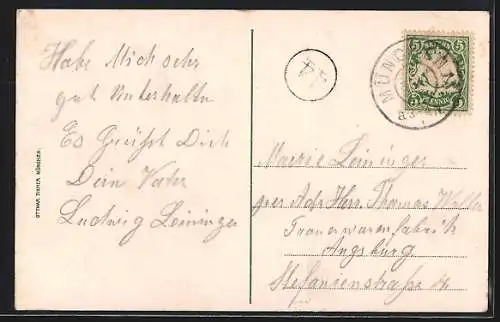 Habe Mich sehr
gut Unterhalten
Es Grüßt Dich
Dein Vater
Ludwig Leininger
OTTMAR ZIEHER, MÜNCHEN.
BAYERN
5 5
PFENNIG
MÜNCHEN
Marie Leininger
per Adr Herr Thomas
Trauerwarenfabrik
Augsburg
Stefanienstraße